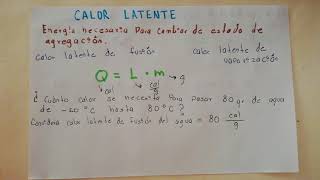 CALOR LATENTE
Energía necesaria para cambiar de estado de
agregación.
calor latente de fusión calor latente de
vaporización
Q = L · m → g
cal cal
g
¿ Cuánto calor se necesita para pasar 80 gr. de agua
de -20 °C hasta 80 °C ?
Considera calor latente de fusión del agua = 80 cal
g